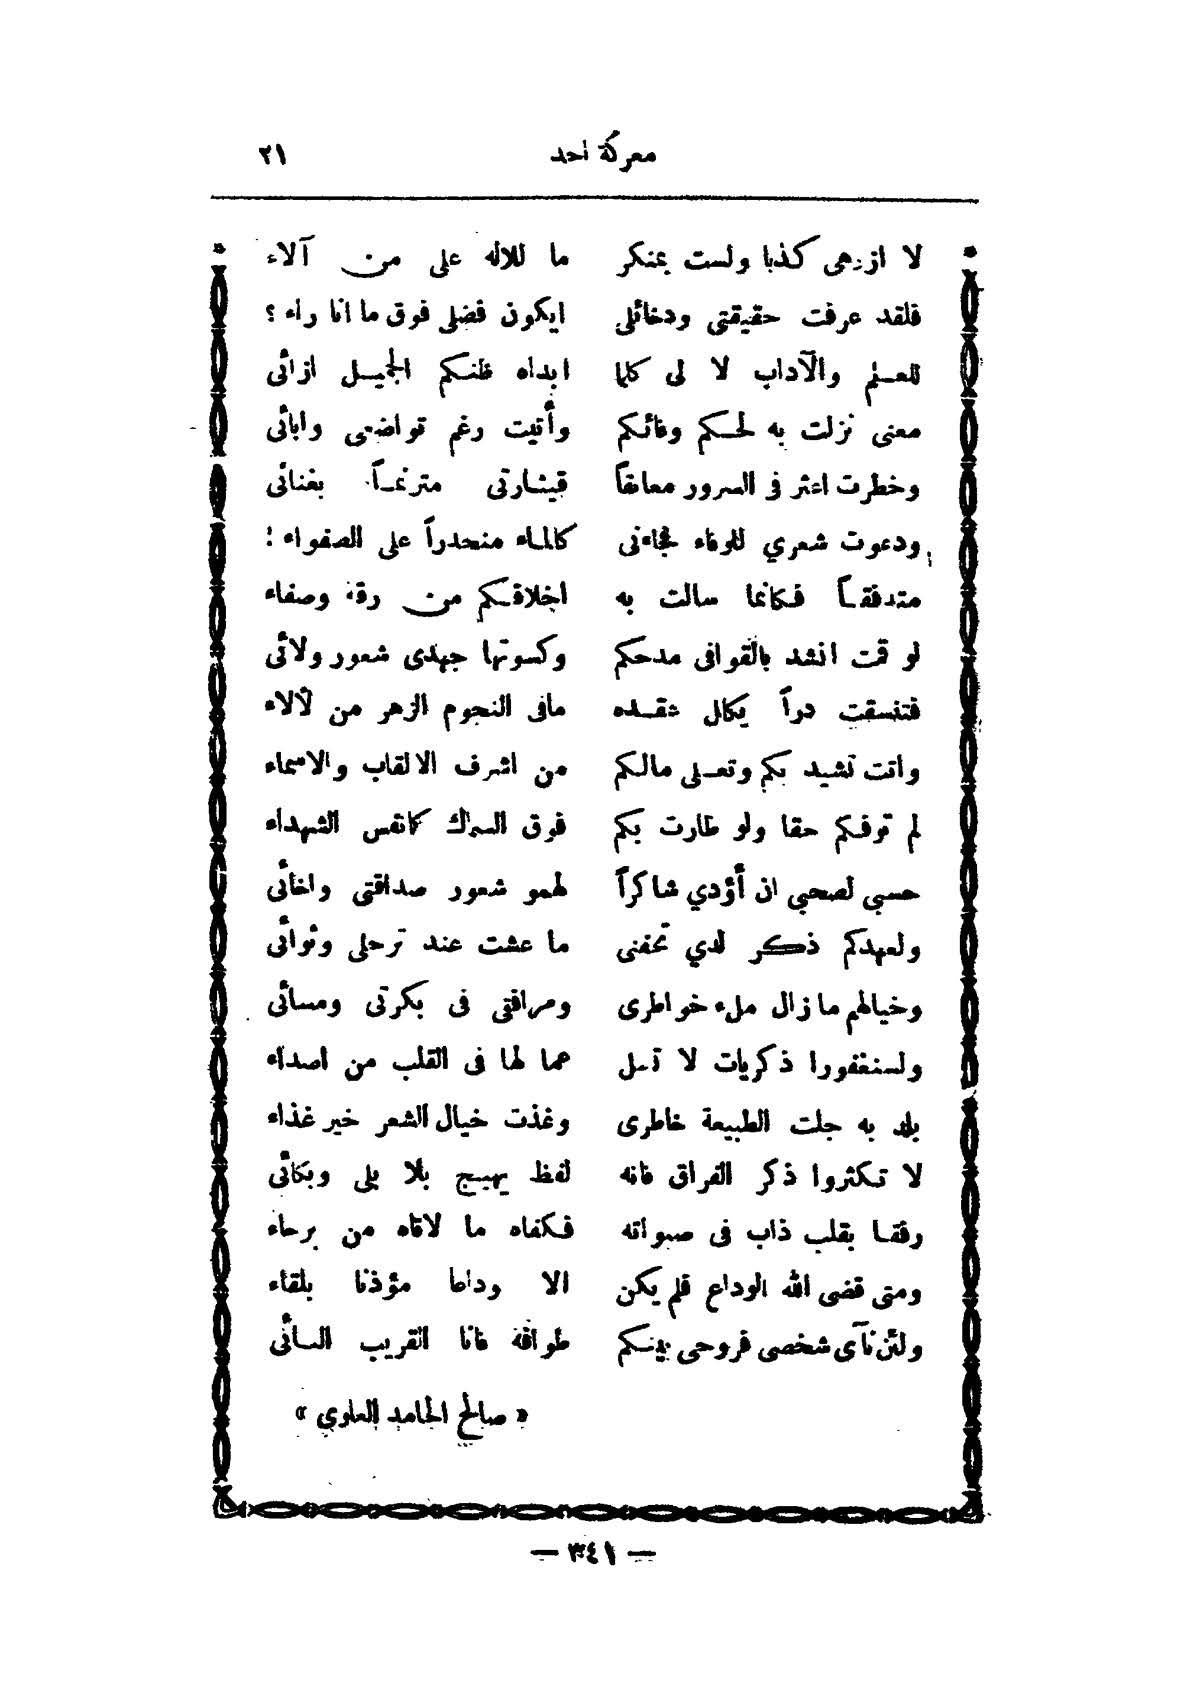 معركة أحد ٢١
لا ازدهى كذبا ولست بمنكر ما للاله على من آلاء
فلقد عرفت حقيقتى ودخائلى ايكون فضلى فوق ما انا راء ؟
للعلم والآداب لا لى كلما ابداه ظنكم الجميل ازائى
معنى نزلت به لحكم وفائكم وأتيت رغم تواضعى وابائى
وخطرت اعثر فى السرور معانقاً قيثارتى مترنماً بغنائى
ودعوت شعري للوفاء فجاءنى كالماء منحدراً على الصفواء !
متدفقاً فكانما سالت به اخلاقكم من رقة وصفاء
لو قمت انشد بالقوافى مدحكم وكسوتها جهدى شعور ولائى
فتنسقت دراً يكال عقده مافى النجوم الزهر من لألاء
واتت تشيد بكم وتعلى مالكم من اشرف الالقاب والاسماء
لم توفكم حقا ولو طارت بكم فوق السماك كانفس الشهداء
حسبي لصحبي ان أؤدي شاكراً لهمو شعور صداقتى واخائى
ولعهدكم ذكر لدي تحفنى ما عشت عند ترحلى وثوائى
وخيالهم ما زال ملء خواطرى ومرافقى فى بكرتى ومسائى
ولسنغفورا ذكريات لا تمل عما لها فى القلب من اصداء
بلد به جلت الطبيعة خاطرى وغذت خيال الشعر خير غذاء
لا تكثروا ذكر الفراق فانه لفظ يهيج بلا بلى وبكائى
رفقا بقلب ذاب فى صبواته فكفاه ما لاقاه من برحاء
ومتى قضى الله الوداع فلم يكن الا وداعا مؤذنا بلقاء
ولئن نآى شخصى فروحى بينكم طوافة فانا القريب النائى
« صالح الحامد العلوي »
— ٣٤١ —